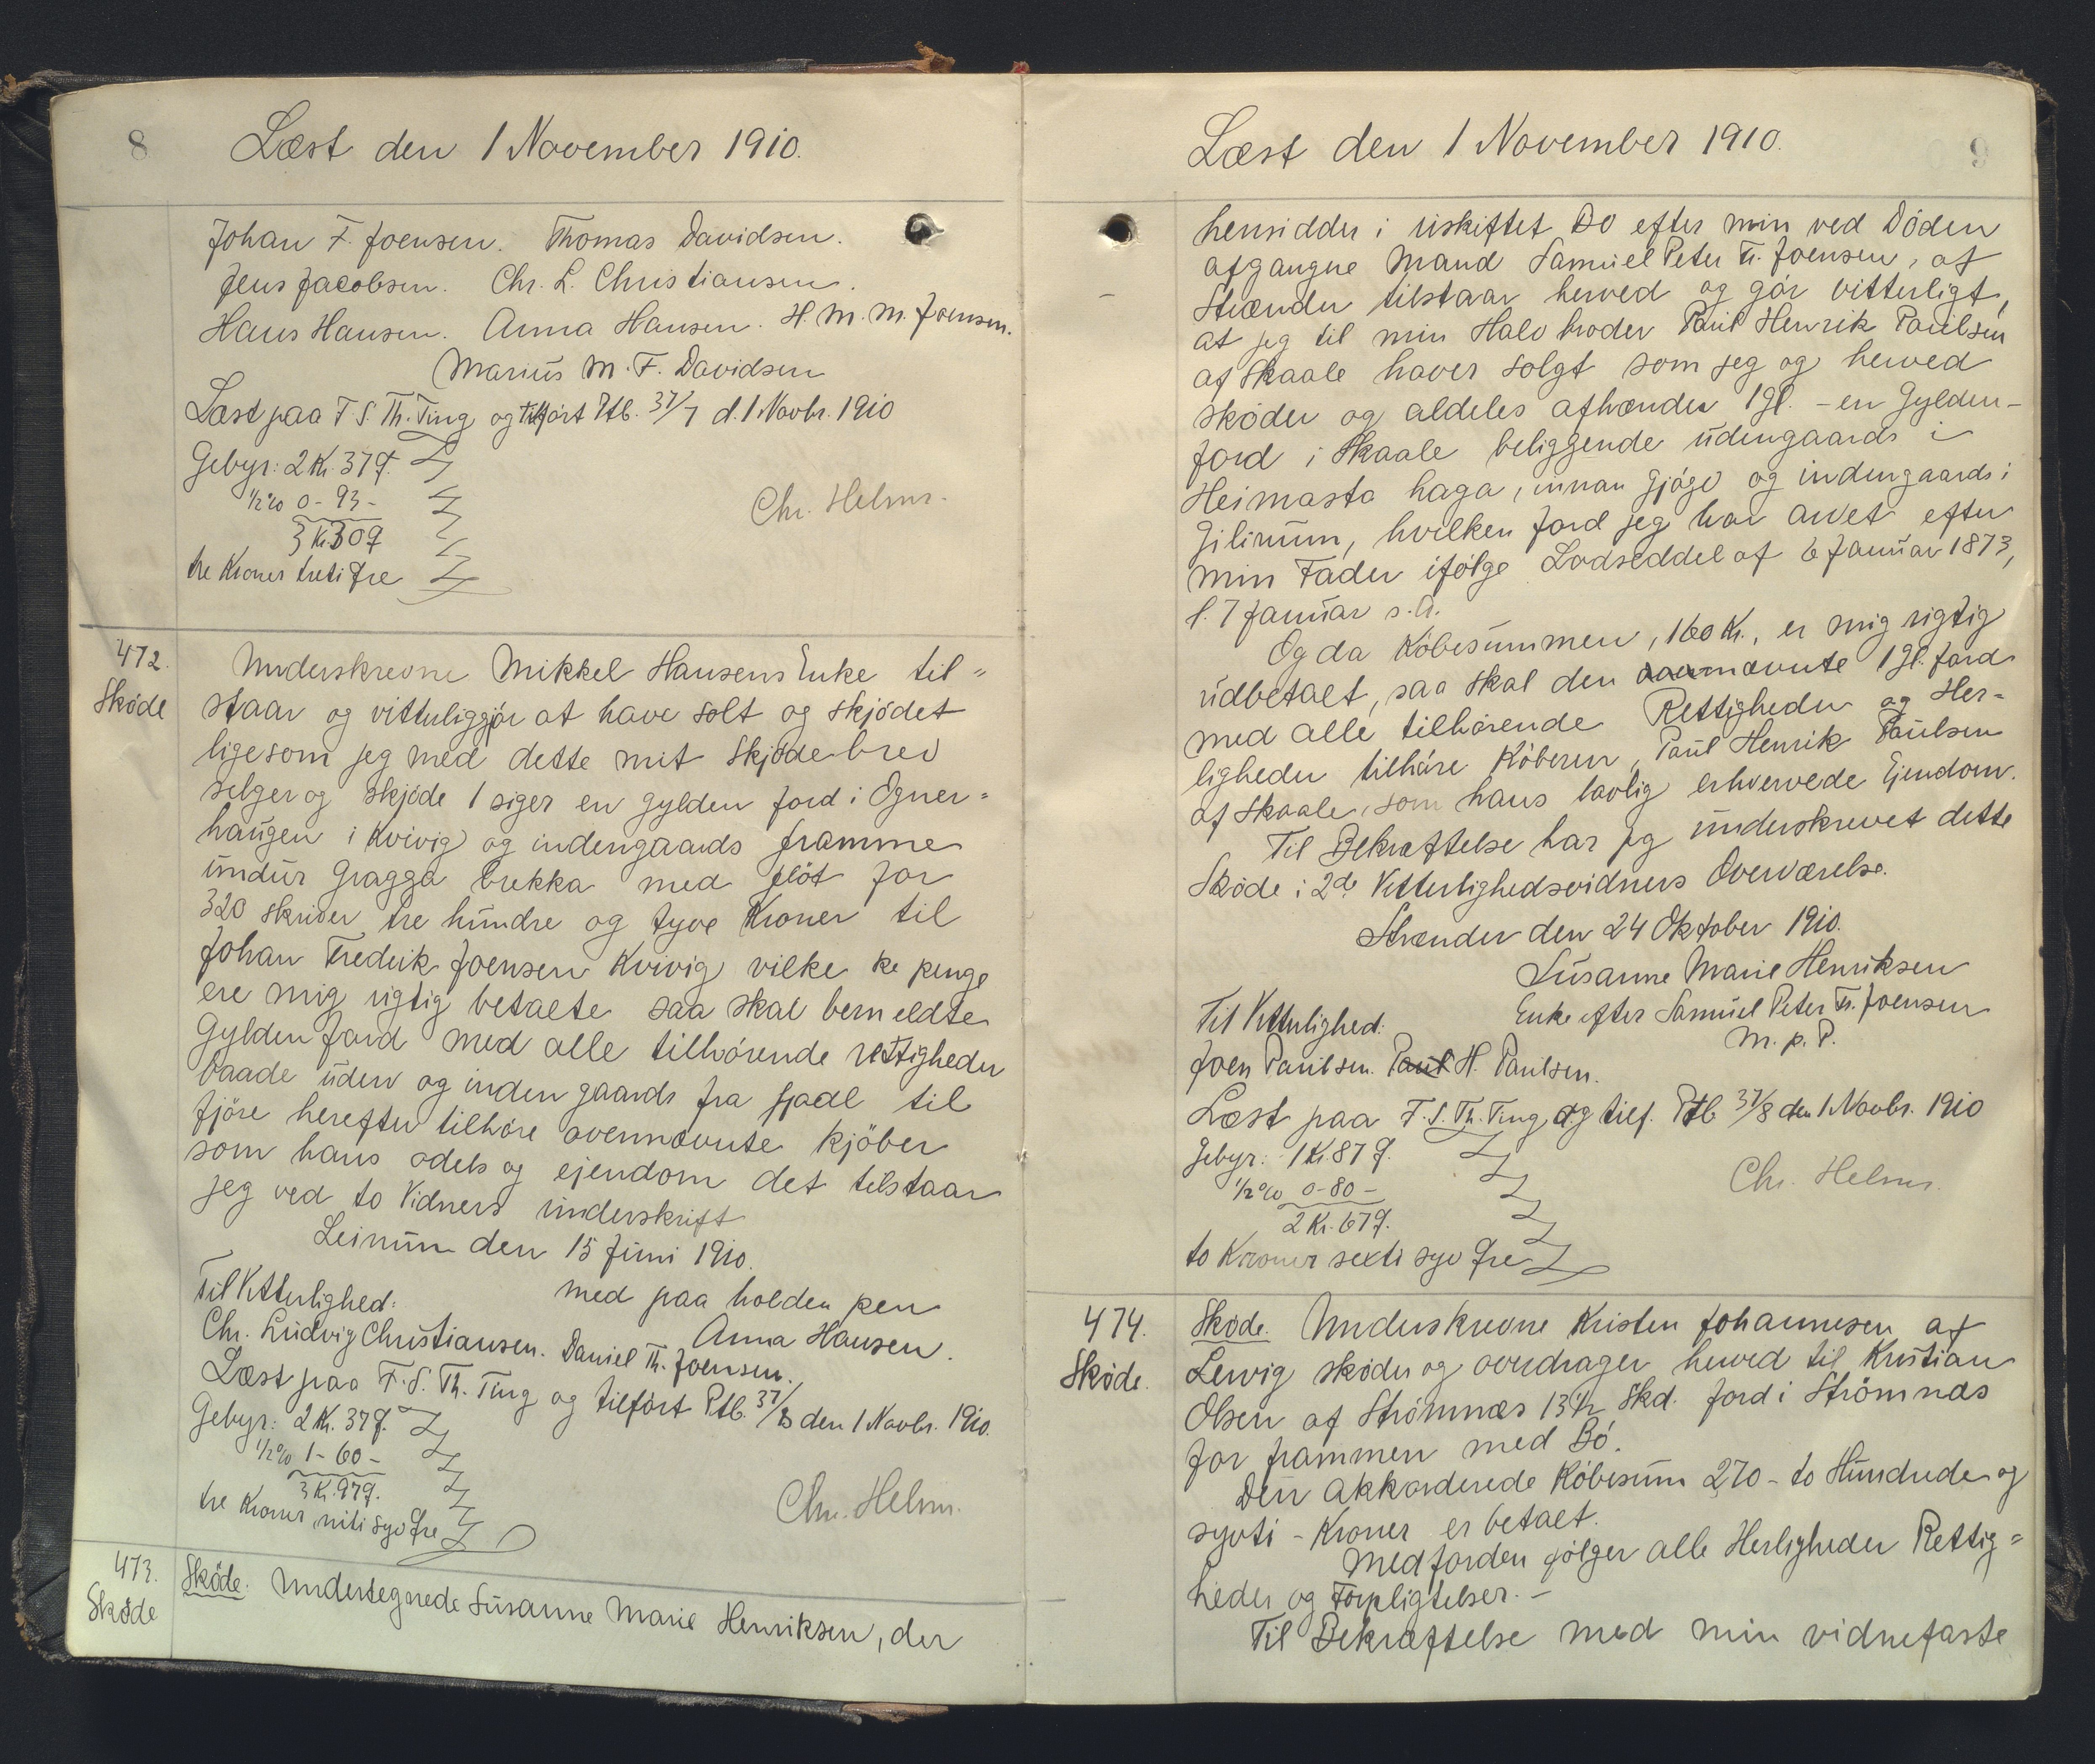 8
Læst den 1 November 1910.
Johan F. Joensen. Thomas Davidsen.
Jens Jacobsen. Chr. L. Christiansen.
Hans Hansen. Anna Hansen. H. M. M. Joensen.
Marius M. F. Davidsen
Læst paa F S. Th. Ting og tilført Ptb. 37/7 d. 1 Novbr. 1910
Gebyr: 2 Kr. 37 Ø.
1/2 % 0 - 93 -
3 Kr. 30 Ø
tre Kroner treti Øre
Chr. Helms.
472.
Skøde
Underskrevne Mikkel Hansens Enke til=
staar og vitterliggjør at have solt og skjødet
ligesom jeg med dette mit skjødebrev
selger og skjøde 1 siger en gylden jord i Ogner=
haugen i Kvivig og indengaards framme
undur Gragga brekka med fløt for
320 skriver tre hundre og tyve Kroner til
Johan Fredrik Joensen Kvivig vilke ke penge
ere mig rigtig betalte saa skal bemeldte
Gylden Jord med alle tilhørende rettigheder
baade uden og inden gaards fra fjadl til
fjøre herefter tilhøre ovennævnte kjøber
som hans odels og ejendom det tilstaar
jeg ved to Vidners underskrift
Leinum den 15 Juni 1910.
Til Vitterlighed: med paa holden pen
Anna Hansen.
Chr. Ludvig Christiansen. Daniel Th. Joensen.
Læst paa F. S. Th. Ting og tilført Ptb. 37/8 den 1 Novbr. 1910.
Gebyr: 2 Kr. 37 Ø.
1/2 % 1 - 60 -
3 Kr. 97 Ø.
tre Kroner niti syv Øre
Chr. Helms.
473.
Skøde
Skøde. Undertegnede Susanne Marie Henriksen, der
9
Læst den 1 November 1910.
hensidder i uskiftet Bo efter min ved Døden
afgangne Mand Samuel Peter Fr. Joensen, af
Strænder tilstaar herved og gør vitterligt,
at jeg til min Halvbroder Paul Henrik Paulsen
af Skaale haver solgt som jeg og herved
skøder og aldeles afhænder 1 Gl. - en Gylden -
Jord i Skaale beliggende udengaards i
Heimasta haga, innan Gjógv og indengaards i
Gilinum, hvilken Jord jeg har arvet efter
min Fader ifølge Lodseddel af 6 Januar 1873,
l. 7 Januar s. A.
Og da Købesummen, 160 Kr., er mig rigtig
udbetalt, saa skal den nævnte 1 Gl. Jord
med alle tilhørende Rettigheder og Her=
ligheder tilhøre Køberen, Paul Henrik Paulsen
af Skaale, som hans lovlig erhvervede Ejendom.
Til Bekræftelse har jeg underskrevet dette
Skøde i 2de Vitterlighedsvidners Overværelse.
Strænder den 24 Oktober 1910.
Susanne Marie Henriksen
Enke efter Samuel Peter Fr. Joensen
m. p. P.
Til Vitterlighed:
Joen Paulsen. Paul H. Paulsen.
Læst paa F. S. Th. Ting og tilf. Ptb 37/8 den 1 Novbr. 1910
Gebyr: 1 Kr. 87 Ø.
1/2 % 0 - 80 -
2 Kr. 67 Ø.
to Kroner seksti syv Øre
Chr. Helms.
474.
Skøde.
Skøde. Underskrevne Kristen Johannesen af
Lervig skøder og overdrager herved til Kristian
Olsen af Strømnæs 13 1/2 Skd. Jord i Strømnæs
for frammen med Bø.
Den akkorderede Købesum 270 - to Hundrede og
syvti - Kroner er betalt.
Med Jorden følger alle Herligheder Rettig=
heder og Forpligtelser. -
Til Bekræftelse med min vidnefaste